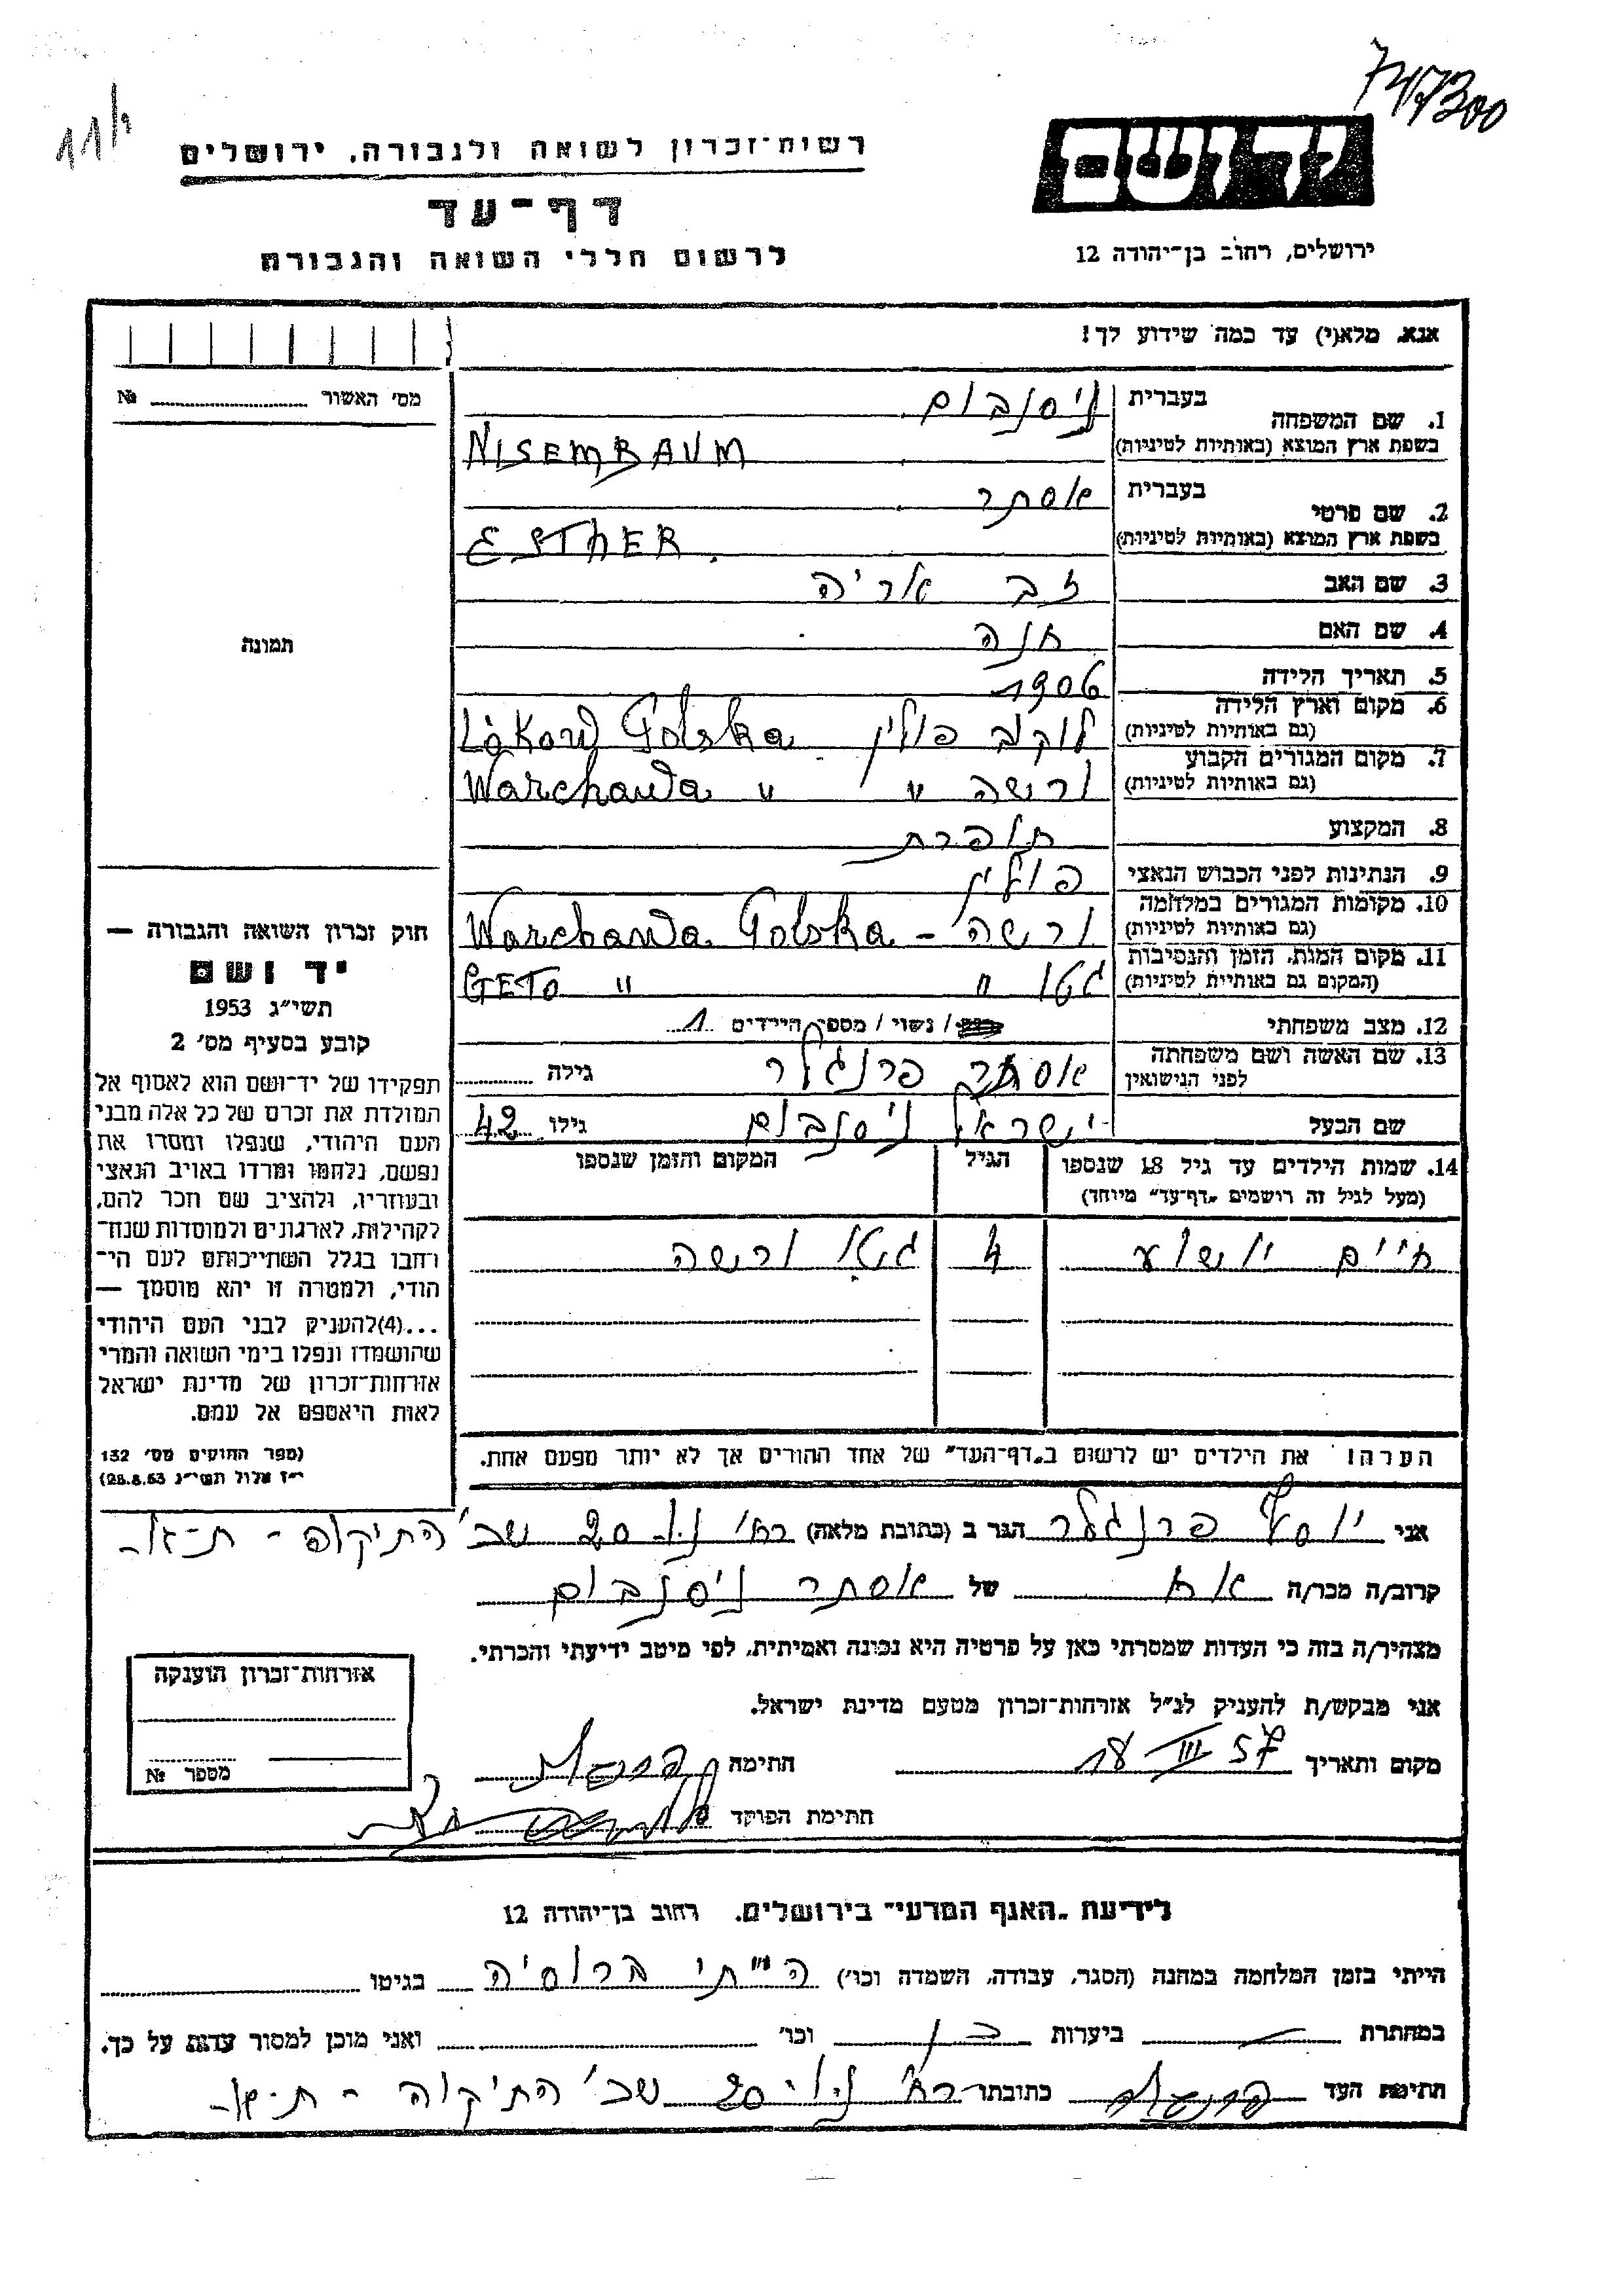 747300
11/1
רשות-זכרון לשואה ולגבורה, ירושלים
דף-עד
לרשום חללי השואה והגבורה
יד ושם
ירושלים, רחוב בן-יהודה 12
אנא, מלא(י) עד כמה שידוע לך!
מס' האשור № 
1. שם המשפחה בעברית ניסנבוים
בשפת ארץ המוצא (באותיות לטיניות) NISEMBAUM
2. שם פרטי בעברית אסתר
בשפת ארץ המוצא (באותיות לטיניות) ESTHER
3. שם האב זב אריה
4. שם האם חנה
תמונה
5. תאריך הלידה 1906
6. מקום וארץ הלידה (גם באותיות לטיניות) לוקוב פולין Lòkow Polska
7. מקום המגורים הקבוע (גם באותיות לטיניות) ורשה " Warchawa "
8. המקצוע תופרת
9. הנתינות לפני הכבוש הנאצי פולין
10. מקומות המגורים במלחמה (גם באותיות לטיניות) ורשה - Warchawa Polska
11. מקום המות, הזמן והנסיבות (המקום גם באותיות לטיניות) גטו " GETO "
12. מצב משפחתי / נשוי / מספר הילדים 1
13. שם האשה ושם משפחתה לפני הנישואין אסתר פרנגלר גילה
שם הבעל ישראל ניסנבוים גילו 42
14. שמות הילדים עד גיל 18 שנספו הגיל המקום והזמן שנספו
(מעל לגיל זה רושמים "דף-עד" מיוחד)
חיים יושע 4 גיטו ורשה
הערה: את הילדים יש לרשום ב"דף-העד" של אחד ההורים אך לא יותר מפעם אחת.
חוק זכרון השואה והגבורה —
יד ושם
תשי"ג 1953
קובע בסעיף מס' 2
תפקידו של יד-ושם הוא לאסוף אל
המולדת את זכרם של כל אלה מבני
העם היהודי, שנפלו ומסרו את
נפשם, נלחמו ומרדו באויב הנאצי
ובעוזריו, ולהציב שם וזכר להם,
לקהילות, לארגונים ולמוסדות שנח-
רבו בגלל השתייכותם לעם הי-
הודי, ולמטרה זו יהא מוסמך —
...(4)להעניק לבני העם היהודי
שהושמדו ונפלו בימי השואה והמרי
אזרחות-זכרון של מדינת ישראל
לאות היאספם אל עמם.
(ספר החוקים מס' 132
י"ז אלול תשי"ג 28.8.53)
אני יוסף פרנגלר הגר ב (כתובת מלאה) רח' נוו 20 שכ' התיקוה - ת-א-
קרוב/ה מכר/ה אח של אסתר ניסנבוים
מצהיר/ה בזה כי העדות שמסרתי כאן על פרטיה היא נכונה ואמיתית, לפי מיטב ידיעתי והכרתי.
אני מבקש/ת להעניק לנ"ל אזרחות-זכרון מטעם מדינת ישראל.
מקום ותאריך 18 III 57 חתימה
חתימת הפוקד
אזרחות-זכרון הוענקה
מספר №
לידיעת "האגף המדעי" בירושלים, רחוב בן-יהודה 12
הייתי בזמן המלחמה במחנה (הסגר, עבודה, השמדה וכו') הייתי ברוסיה בגיטו
במחתרת ביערות וכו' ואני מוכן למסור עדות על כך.
חתימת העד כתובתו רח' נוו-20 שכ' התיקוה - ת-א-